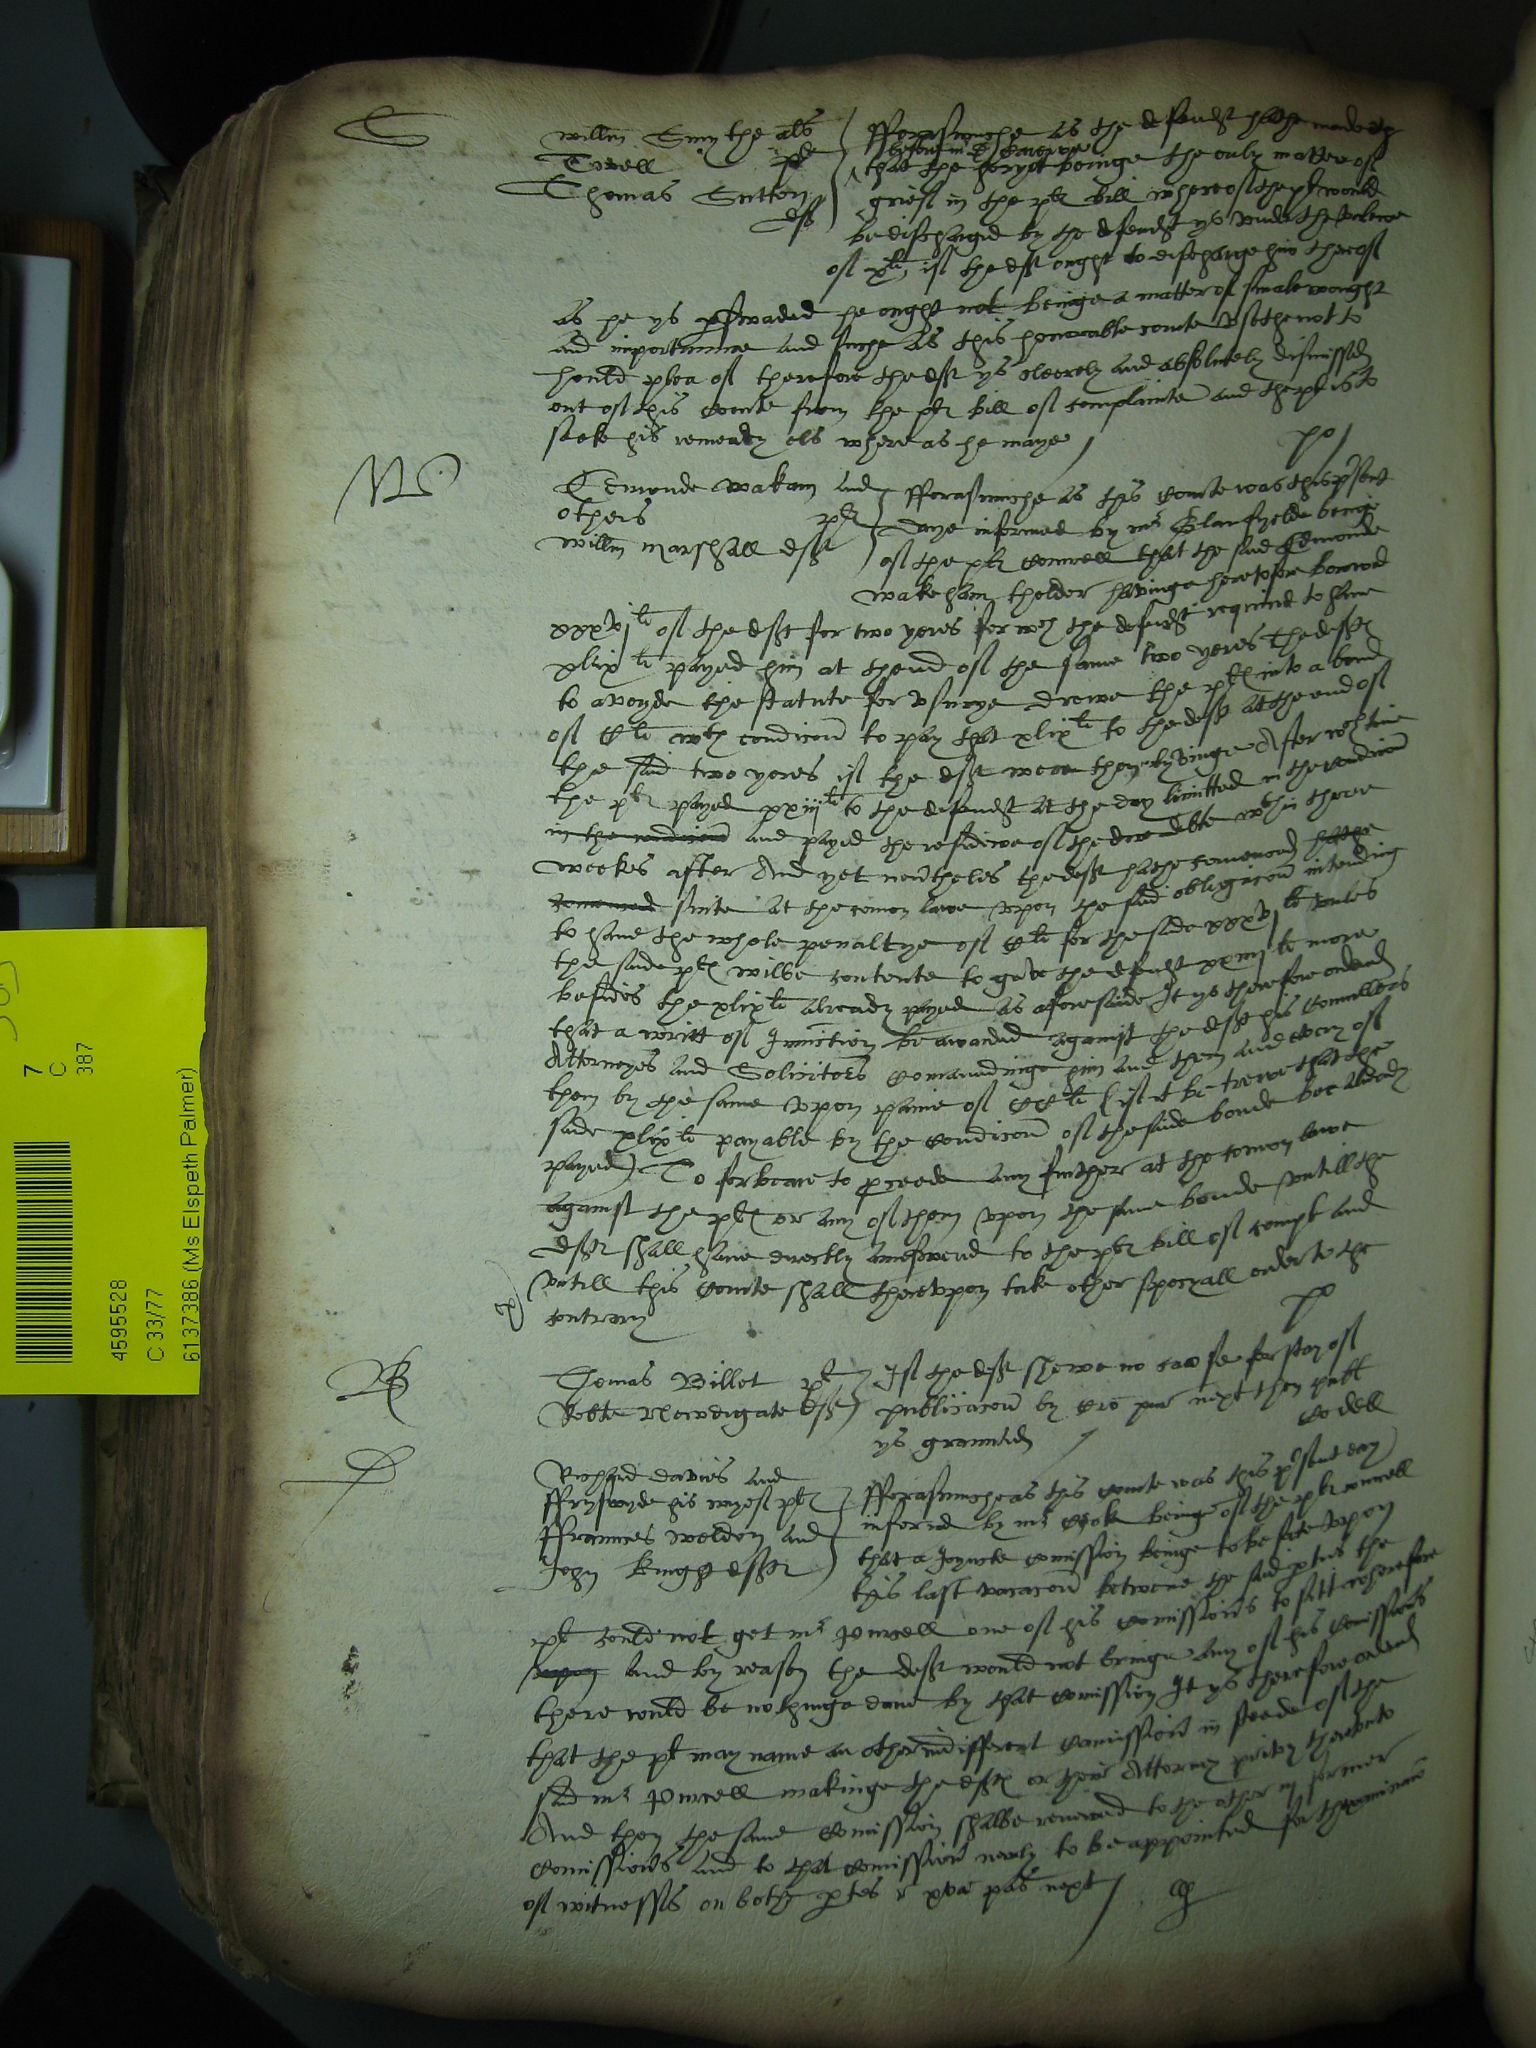 S
willm Smythe als
Terrell plt
Thomas Sutton
deft
fforasmuche as the defendt hathe made oth
that the heryot beinge the only matter of
grief in the plts bill whereof the plt would
be discharged by the defendt ys under the valewe
of xli if the deft ought to discharge him therof
as he ys perswaded he ought not beinge a matter of smale weight
and importaunce and suche as this honorable courte useth not to
hould plea of therefore the deft ys cleerely and absolutely dismissed
out of this courte from the plts bill of complainte and the plt is to
seeke his remeady els where as he maye
po
M
Edmonde wakam and
others plts
willm marshall deft
fforasmuche as this courte was this psent
daye informed by mr beinge
of the plts councell that the said Edmonde
wakeham tholder havinge heretofore borowed
xxxvjli of the deft for two yeres for wch the defendt required to have
xlixli payed him at thend of the same two yeres the deft
to avoyde the statute for usurye drewe the plts into a bond
of Cli wth condicon to pay that xlixli to the deft at the end of
the said two yeres if the deft were then lyvinge After wch time
the plts payed xxiijli to the defendt at the day limitted in the condicon
in the condicon and payed the residewe of the dewe debte wthin three
weekes after And yet nevertheles the deft hathe comenced hathe
comenced suite at the comon lawe upon the said obligacon intending
to have the whole penaltye of Cli for the saide xxxvjli unles
the saide plts wilbe contente to geve the defendt xxiiijli more
besides the xlixli already payed as aforesaide It ys therefore ordered
that a writt of Iniunction be awarded against the deft his councellors
Attorneyes and Solicitors comaundinge him and them and every of
them by the same upon paine of CCli (if it be trewe that the
saide xlixli payable by the condicon of the saide bonde bee alredy
payed) To forbeare to proceede any further at the comon lawe
against the plts or any of them upon the same bonde untill the
deft shall have directly aunswered to the plts bill of complt and
untill this courte shall thereupon take other specyall order to the
contrary
po
B
Thomas Billet plt
Robte Newdigate deft
If the deft shewe no cawse for stay of
publicacon by cro pur next then publ
ys graunted
Cordell
D
Richard Davies and
ffryswyde his wyef plts
ffraunces weldon and
John Knight defts
fforasmuche as this courte was this psent day
informed by mr Cooke beinge of the plts councell
that a Joyncte comission beinge to be sate upon
this last vacacon betwene the said pties the
plt could not get mr Purcell one of his comissioners to sitt therefore
upon and by reason the deft would not bringe any of his comissioners
there could be nothinge done by that comission It ys therefore ordered
that the plt may name an other indifferent comissioner in steede of the
said mr Purcell makinge the defts or their Attorney privy thereunto
And then the same comission shalbe renewed to the other in former
comissioners and to that comissioner newly to be appointed for thexaminacon
of witnesses on bothe ptes r xvna pas next
4595528
C 33/77
6137386 (Ms Elspeth Palmer)
7
C
387